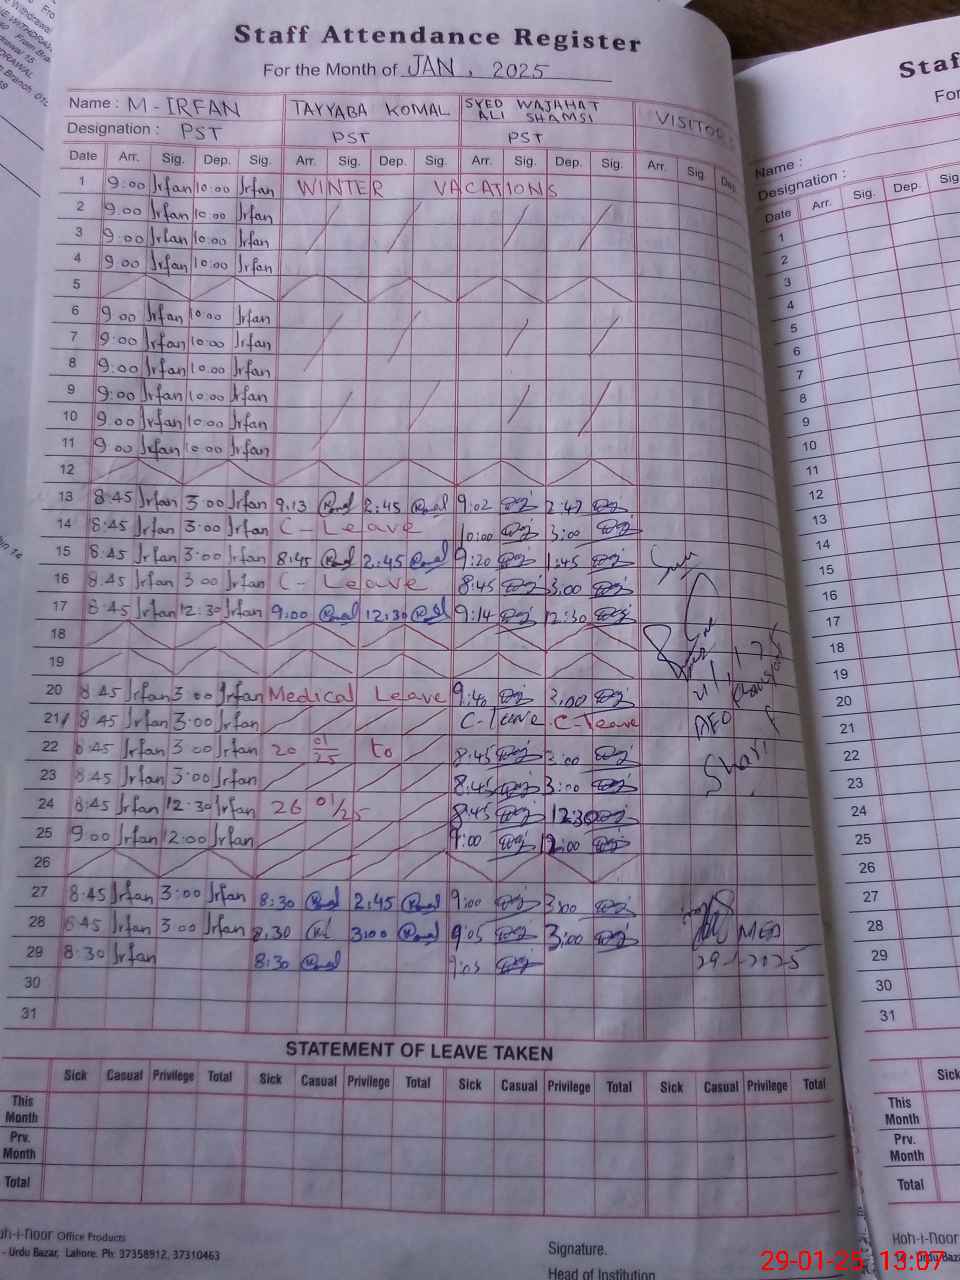 Staff Attendance Register
For the Month of JAN, 2025
Name : M-IRFAN TAYYABA KOMAL SYED WAJAHAT ALI SHAMSI VISITOR
Designation : PST PST PST
Date Arr. Sig. Dep. Sig. Arr. Sig. Dep. Sig. Arr. Sig. Dep. Sig. Arr. Sig. Dep.
1 9:00 Irfan 10:00 Irfan WINTER VACATIONS
2 9:00 Irfan 10:00 Irfan
3 9:00 Irfan 10:00 Irfan
4 9:00 Irfan 10:00 Irfan
5
6 9:00 Irfan 10:00 Irfan
7 9:00 Irfan 10:00 Irfan
8 9:00 Irfan 10:00 Irfan
9 9:00 Irfan 10:00 Irfan
10 9:00 Irfan 10:00 Irfan
11 9:00 Irfan 10:00 Irfan
12
13 8:45 Irfan 3:00 Irfan 9:13 2:45 9:02 2:47
14 8:45 Irfan 3:00 Irfan C-Leave 10:00 3:00
15 8:45 Irfan 3:00 Irfan 8:45 2:45 9:20 1:45
16 8:45 Irfan 3:00 Irfan C-Leave 8:45 3:00
17 8:45 Irfan 12:30 Irfan 9:00 12:30 9:14 12:30
18
19
20 8:45 Irfan 3:00 Irfan Medical Leave 9:40 3:00
21 8:45 Irfan 3:00 Irfan C-leave C-leave
22 8:45 Irfan 3:00 Irfan 20 01/25 to 8:45 3:00
23 8:45 Irfan 3:00 Irfan 8:45 3:00
24 8:45 Irfan 12:30 Irfan 26 01/25 8:45 12:30
25 9:00 Irfan 12:00 Irfan 9:00 12:00
26
27 8:45 Irfan 3:00 Irfan 8:30 2:45 9:00 3:00
28 8:45 Irfan 3:00 Irfan 8:30 3:00 9:05 3:00
29 8:30 Irfan 8:30 9:05
30
31
AEO
Sharif
MEA
29-1-2025
STATEMENT OF LEAVE TAKEN
Sick Casual Privilege Total Sick Casual Privilege Total Sick Casual Privilege Total Sick Casual Privilege Total
This Month
Prv. Month
Total
Office Products
- Urdu Bazar, Lahore. Ph: 37358912, 37310463
Signature.
Head of Institution
Staf
For
Name :
Designation :
Date Arr. Sig. Dep. Sig.
1
2
3
4
5
6
7
8
9
10
11
12
13
14
15
16
17
18
19
20
21
22
23
24
25
26
27
28
29
30
31
Sick
This Month
Prv. Month
Total
Koh-i-noor
29-01-25 13:07